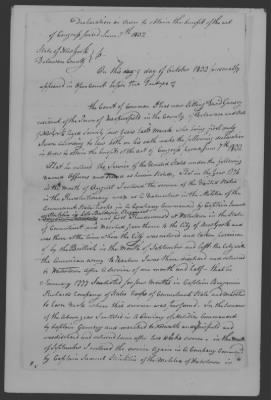 Declaration in order to obtain the benefit of the act
of Congress passed June 7th 1832
State of New York
Delaware County } ss.
On this day of October 1832 personally
appeared in open Court before the Judges of
the Court of Common Pleas now sitting David Gurnsey
resident of the Town of in the County of Delaware and State
of New York aged Seventy four years last March who being first duly
Sworn according to law doth on his oath make the following declaration
in order to obtain the benefit of the act of Congress passed June 7th 1832
That he entered the Service of the United States under the following
named Officers and Served as herein stated. That in the year 1776
in the Month of August I entered the service of the United States
in the Revolutionary war as a Volunteer in the Militia of the
Connecticut State troops in a Company Commanded by Captain
in the State
of Connecticut and Marched from thence to the City of New York and
was there at the time when the City was entered and taken possession
of by the British in the Month of September and left the City with
the American army
to Watertown after a service of one month and half. that in
January 1777 I enlisted for two Months in Captain Benjamin
Richards Company of State Corps of Connecticut State and Marched
to where this service was performed. In the Summer
of the above year I enlisted in a Company of Militia Commanded
by Captain Gurnsey and marched to and
and returned home after two weeks service. in the Month
of September I entered the service again in a Company Commanded
by Captain Samuel of the Militia of Watertown in